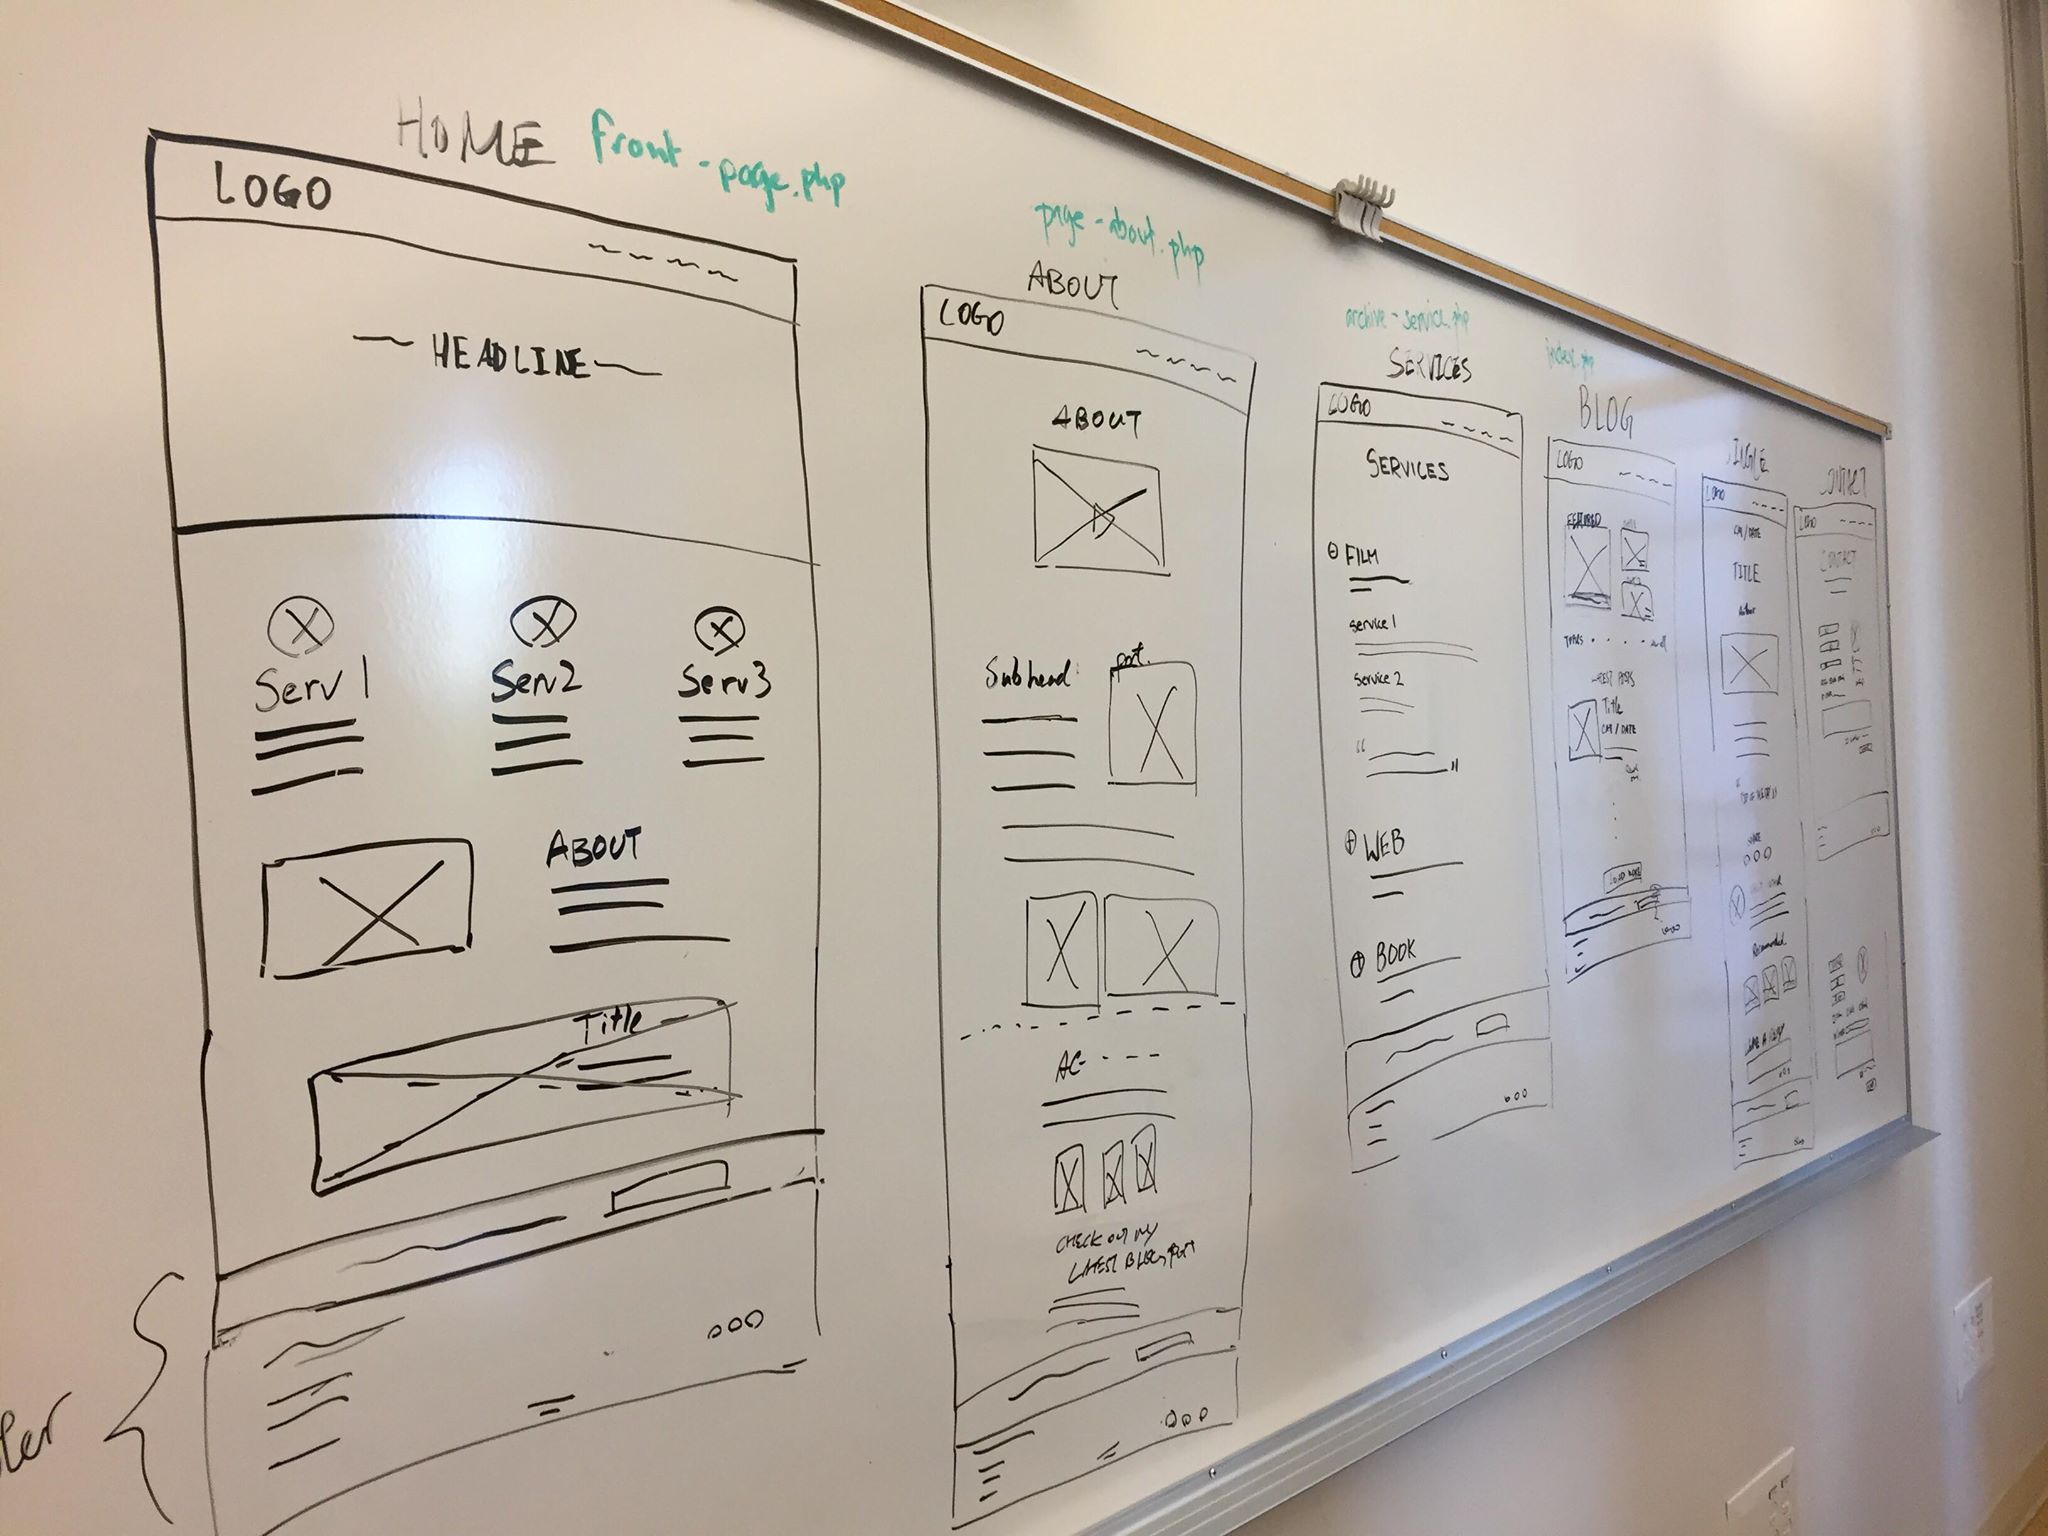 HOME front-page.php
LOGO
HEADLINE
Serv1
Serv2
Serv3
ABOUT
Title
page-about.php
ABOUT
LOGO
ABOUT
Subhead
port.
CHECK OUT MY
LATEST BLOG POST
archive-service.php
SERVICES
LOGO
SERVICES
FILM
service1
service2
“
”
WEB
BOOK
index.php
BLOG
LOGO
FEATURED
Title
CAT / DATE
LOAD MORE
SINGLE
LOGO
CAT / DATE
TITLE
Author
CONTACT
LOGO
CONTACT